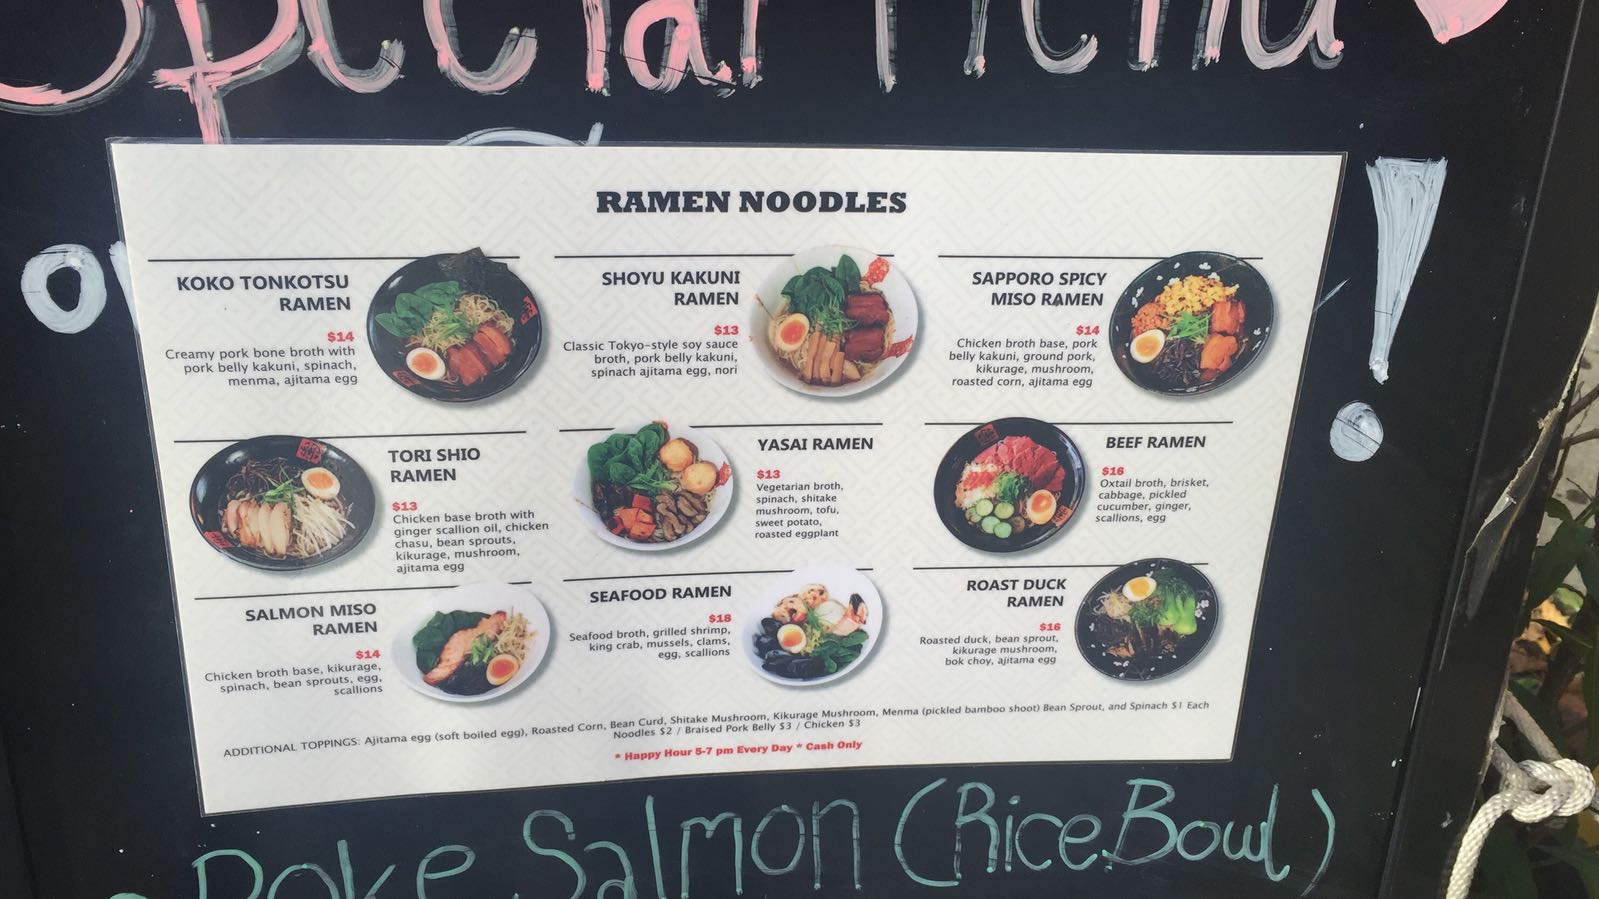 Special Menu
RAMEN NOODLES
KOKO TONKOTSU
RAMEN
$14
Creamy pork bone broth with
pork belly kakuni, spinach,
menma, ajitama egg
SHOYU KAKUNI
RAMEN
$13
Classic Tokyo-style soy sauce
broth, pork belly kakuni,
spinach ajitama egg, nori
SAPPORO SPICY
MISO RAMEN
$14
Chicken broth base, pork
belly kakuni, ground pork,
kikurage, mushroom,
roasted corn, ajitama egg
TORI SHIO
RAMEN
$13
Chicken base broth with
ginger scallion oil, chicken
chasu, bean sprouts,
kikurage, mushroom,
ajitama egg
YASAI RAMEN
$13
Vegetarian broth,
spinach, shitake
mushroom, tofu,
sweet potato,
roasted eggplant
BEEF RAMEN
$16
Oxtail broth, brisket,
cabbage, pickled
cucumber, ginger,
scallions, egg
SALMON MISO
RAMEN
$14
Chicken broth base, kikurage,
spinach, bean sprouts, egg,
scallions
SEAFOOD RAMEN
$18
Seafood broth, grilled shrimp,
king crab, mussels, clams,
egg, scallions
ROAST DUCK
RAMEN
$16
Roasted duck, bean sprout,
kikurage mushroom,
bok choy, ajitama egg
ADDITIONAL TOPPINGS: Ajitama egg (soft boiled egg), Roasted Corn, Bean Curd, Shitake Mushroom, Kikurage Mushroom, Menma (pickled bamboo shoot) Bean Sprout, and Spinach $1 Each
Noodles $2 / Braised Pork Belly $3 / Chicken $3
* Happy Hour 5-7 pm Every Day * Cash Only
Poke Salmon (Rice Bowl)